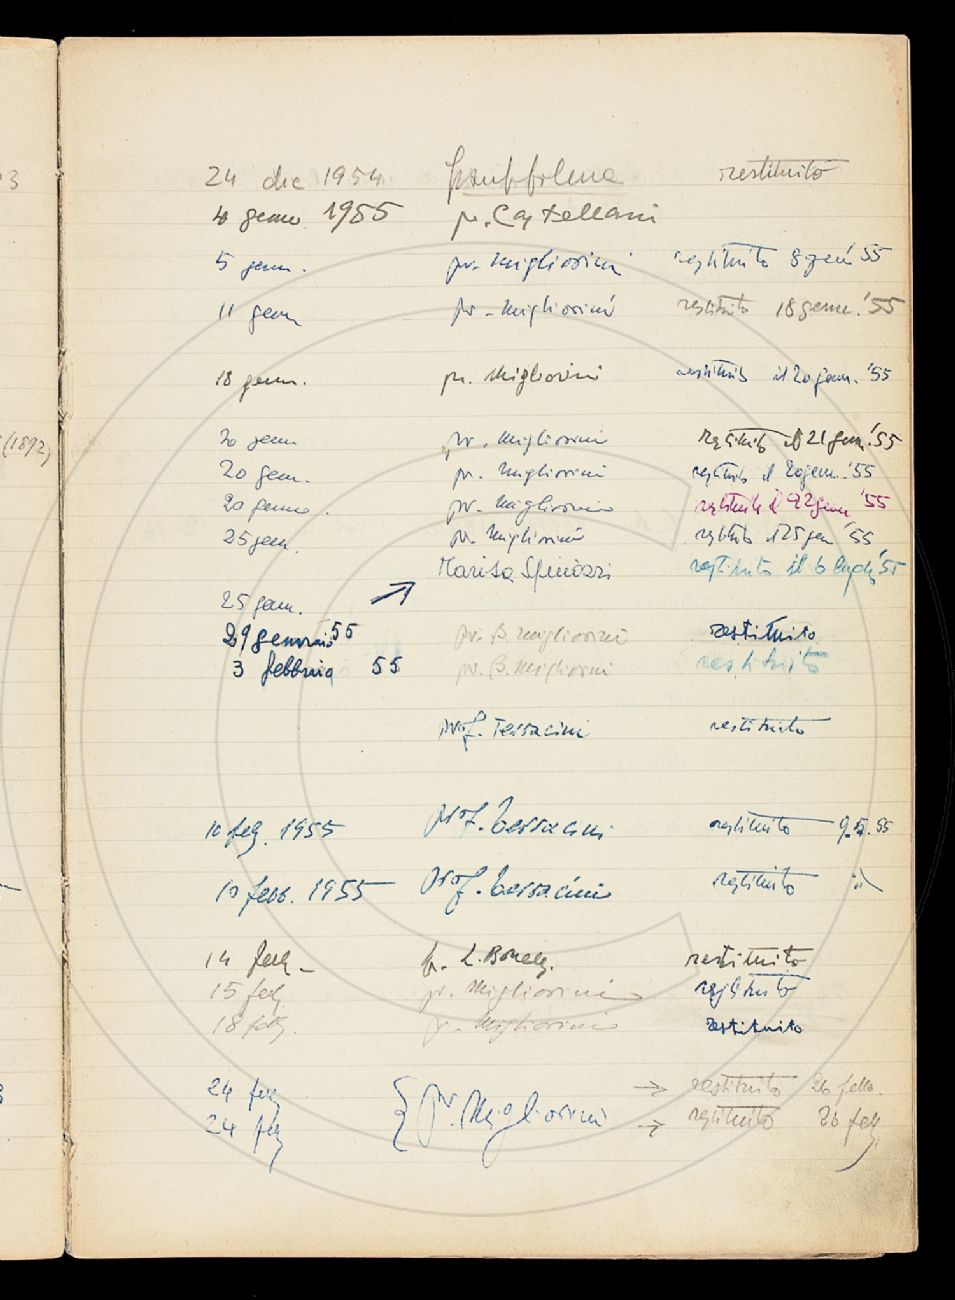 3
24 dic 1954 restituito
4 genno 1955 pr. Castellani
5 genn. pr. Migliorini restituito 8 gen '55
11 genn pr. Migliorini restituito 18 genn. '55
18 genn. pr. Migliorini restituito il 20 genn. '55
(1892)
20 genn pr. Migliorini restituito il 21 gen. '55
20 genn. pr. Migliorini restituito il 20 genn. '55
20 genno. pr. Migliorini restituito il 22 genn '55
25 genn. pr. Migliorini restituito 125 gen '55
Marisa restituito il 6 '55
25 genn.
29 gennaio 55 pr. B. Migliorini restituito
3 febbraio 55 pr. B. Migliorini restituito
prof. Terracini restituito
10 feb. 1955 prof. Terracini restituito
10 febb. 1955 prof. Terracini restituito "
14 feb restituito
15 feb pr. Migliorini restituito
18 feb. pr. Migliorini restituito
24 feb → restituito 26 febb.
{ pr. Migliorini
24 feb → restituito 26 feb